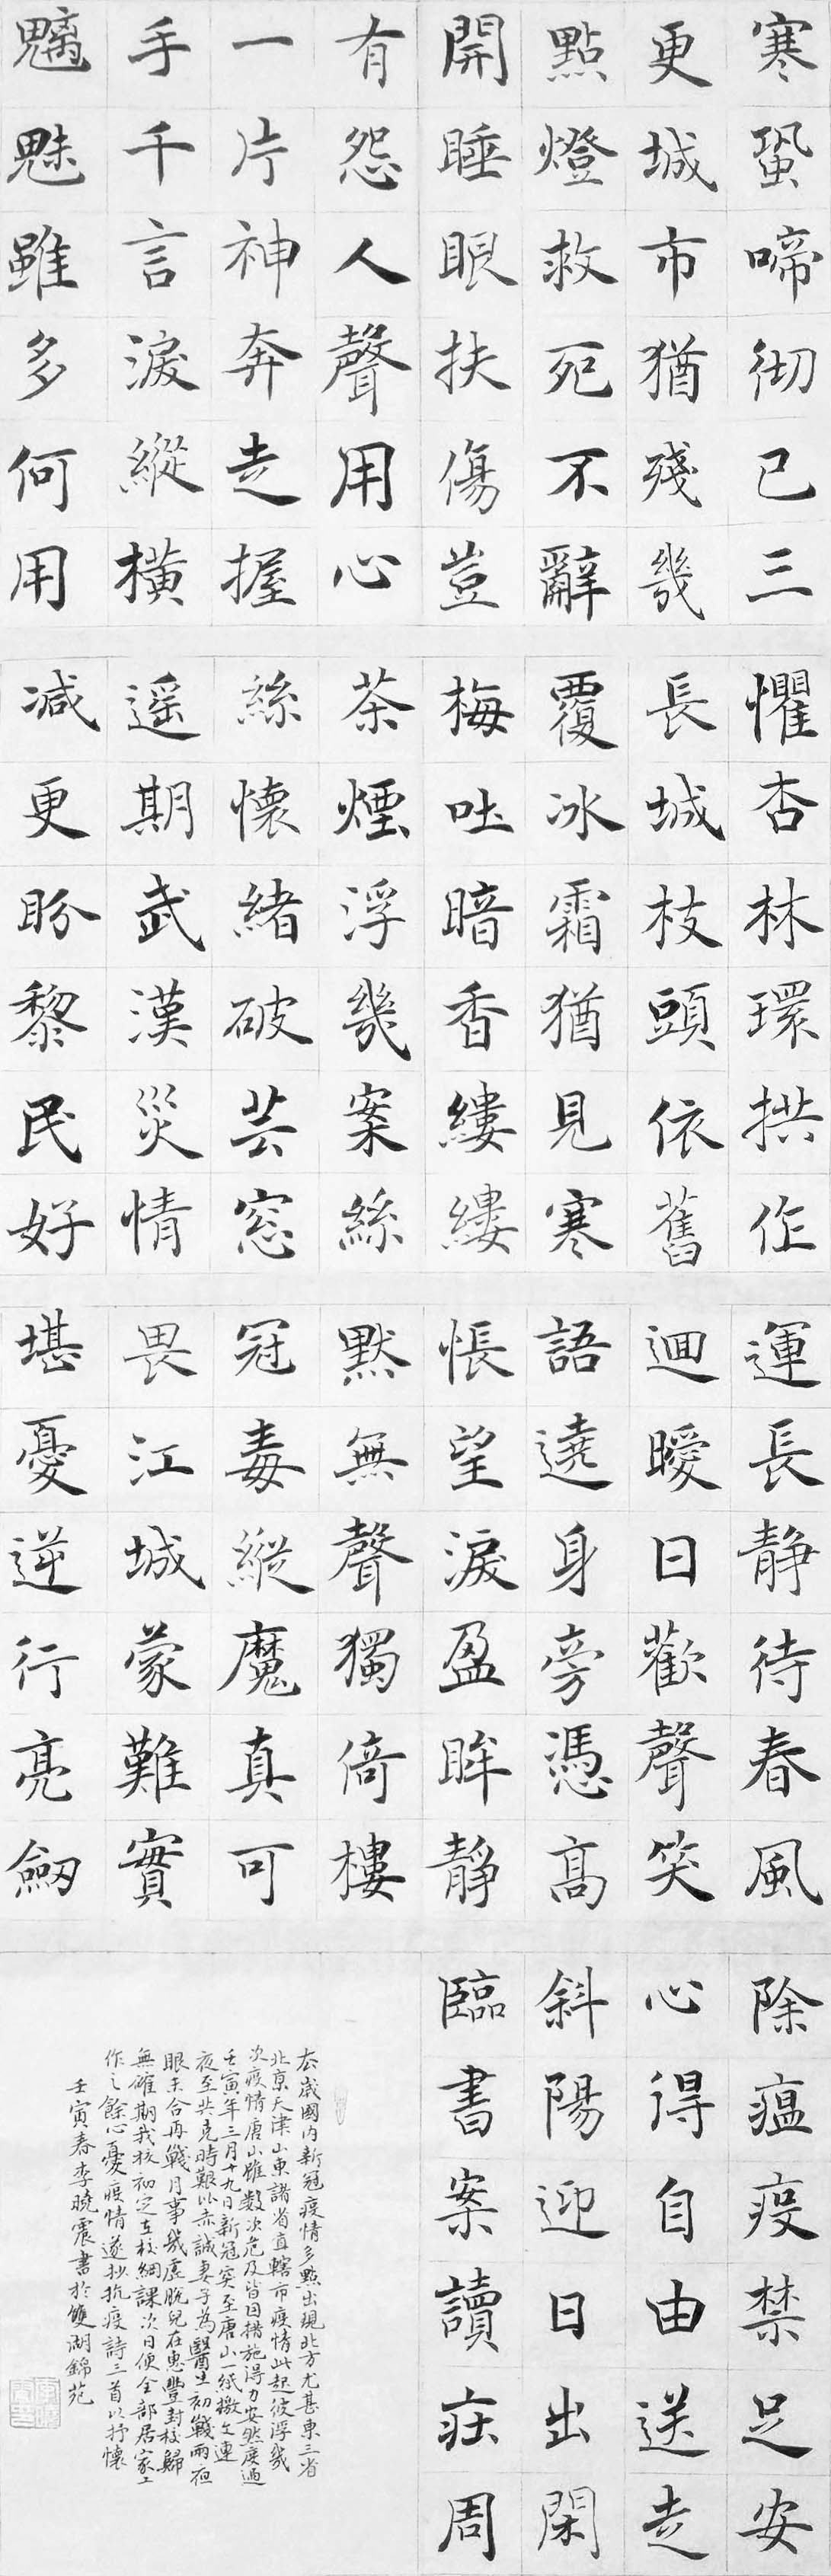 寒蛩啼彻已三
更城市猶殘幾
點燈救死不辭
開睡眼扶傷豈
有怨人聲用心
一片神奔走握
手千言淚縱橫
魑魅雖多何用
懼杏林環拱作
長城枝頭依舊
覆冰霜猶見寒
梅吐暗香縷縷
茶煙浮幾案絲
絲懷緒破芸窓
遥期武漢災情
减更盼黎民好
運長静待春風
迴曖日歡聲笑
語遶身旁憑高
悵望淚盈眸靜
默無聲獨倚樓
冠毒縱魔真可
畏江城蒙難實
堪憂逆行亮劒
除瘟疫禁足安
心得自由送走
斜陽迎日出閑
臨書案讀莊周
去歲國内新冠疫情多點出現北方尤甚東三省
北京天津山東諸省直轄市疫情此起彼浮幾
次疫情唐山雖數次危及皆因措施得力安然度過
壬寅年三月十九日新冠突至唐山一紙檄文連
夜至共克時艱以赤誠妻子為醫生初戰兩夜
眼未合再戰月事幾虚脱兒在惠豐封校歸
無確期我校初定在校網課次日便全部居家工
作之餘心憂疫情遂抄抗疫詩三首以抒懷
壬寅春李曉震書於雙湖錦苑